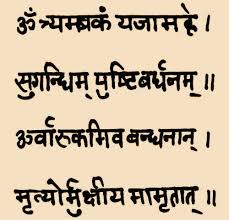 ॐ त्र्यम्बकं यजामहे ।
सुगन्धिम् पुष्टिबर्धनम् ॥
ऊर्वारुकमिव बन्धनान् ।
मृत्योर्मुक्षीय मामृतात् ॥